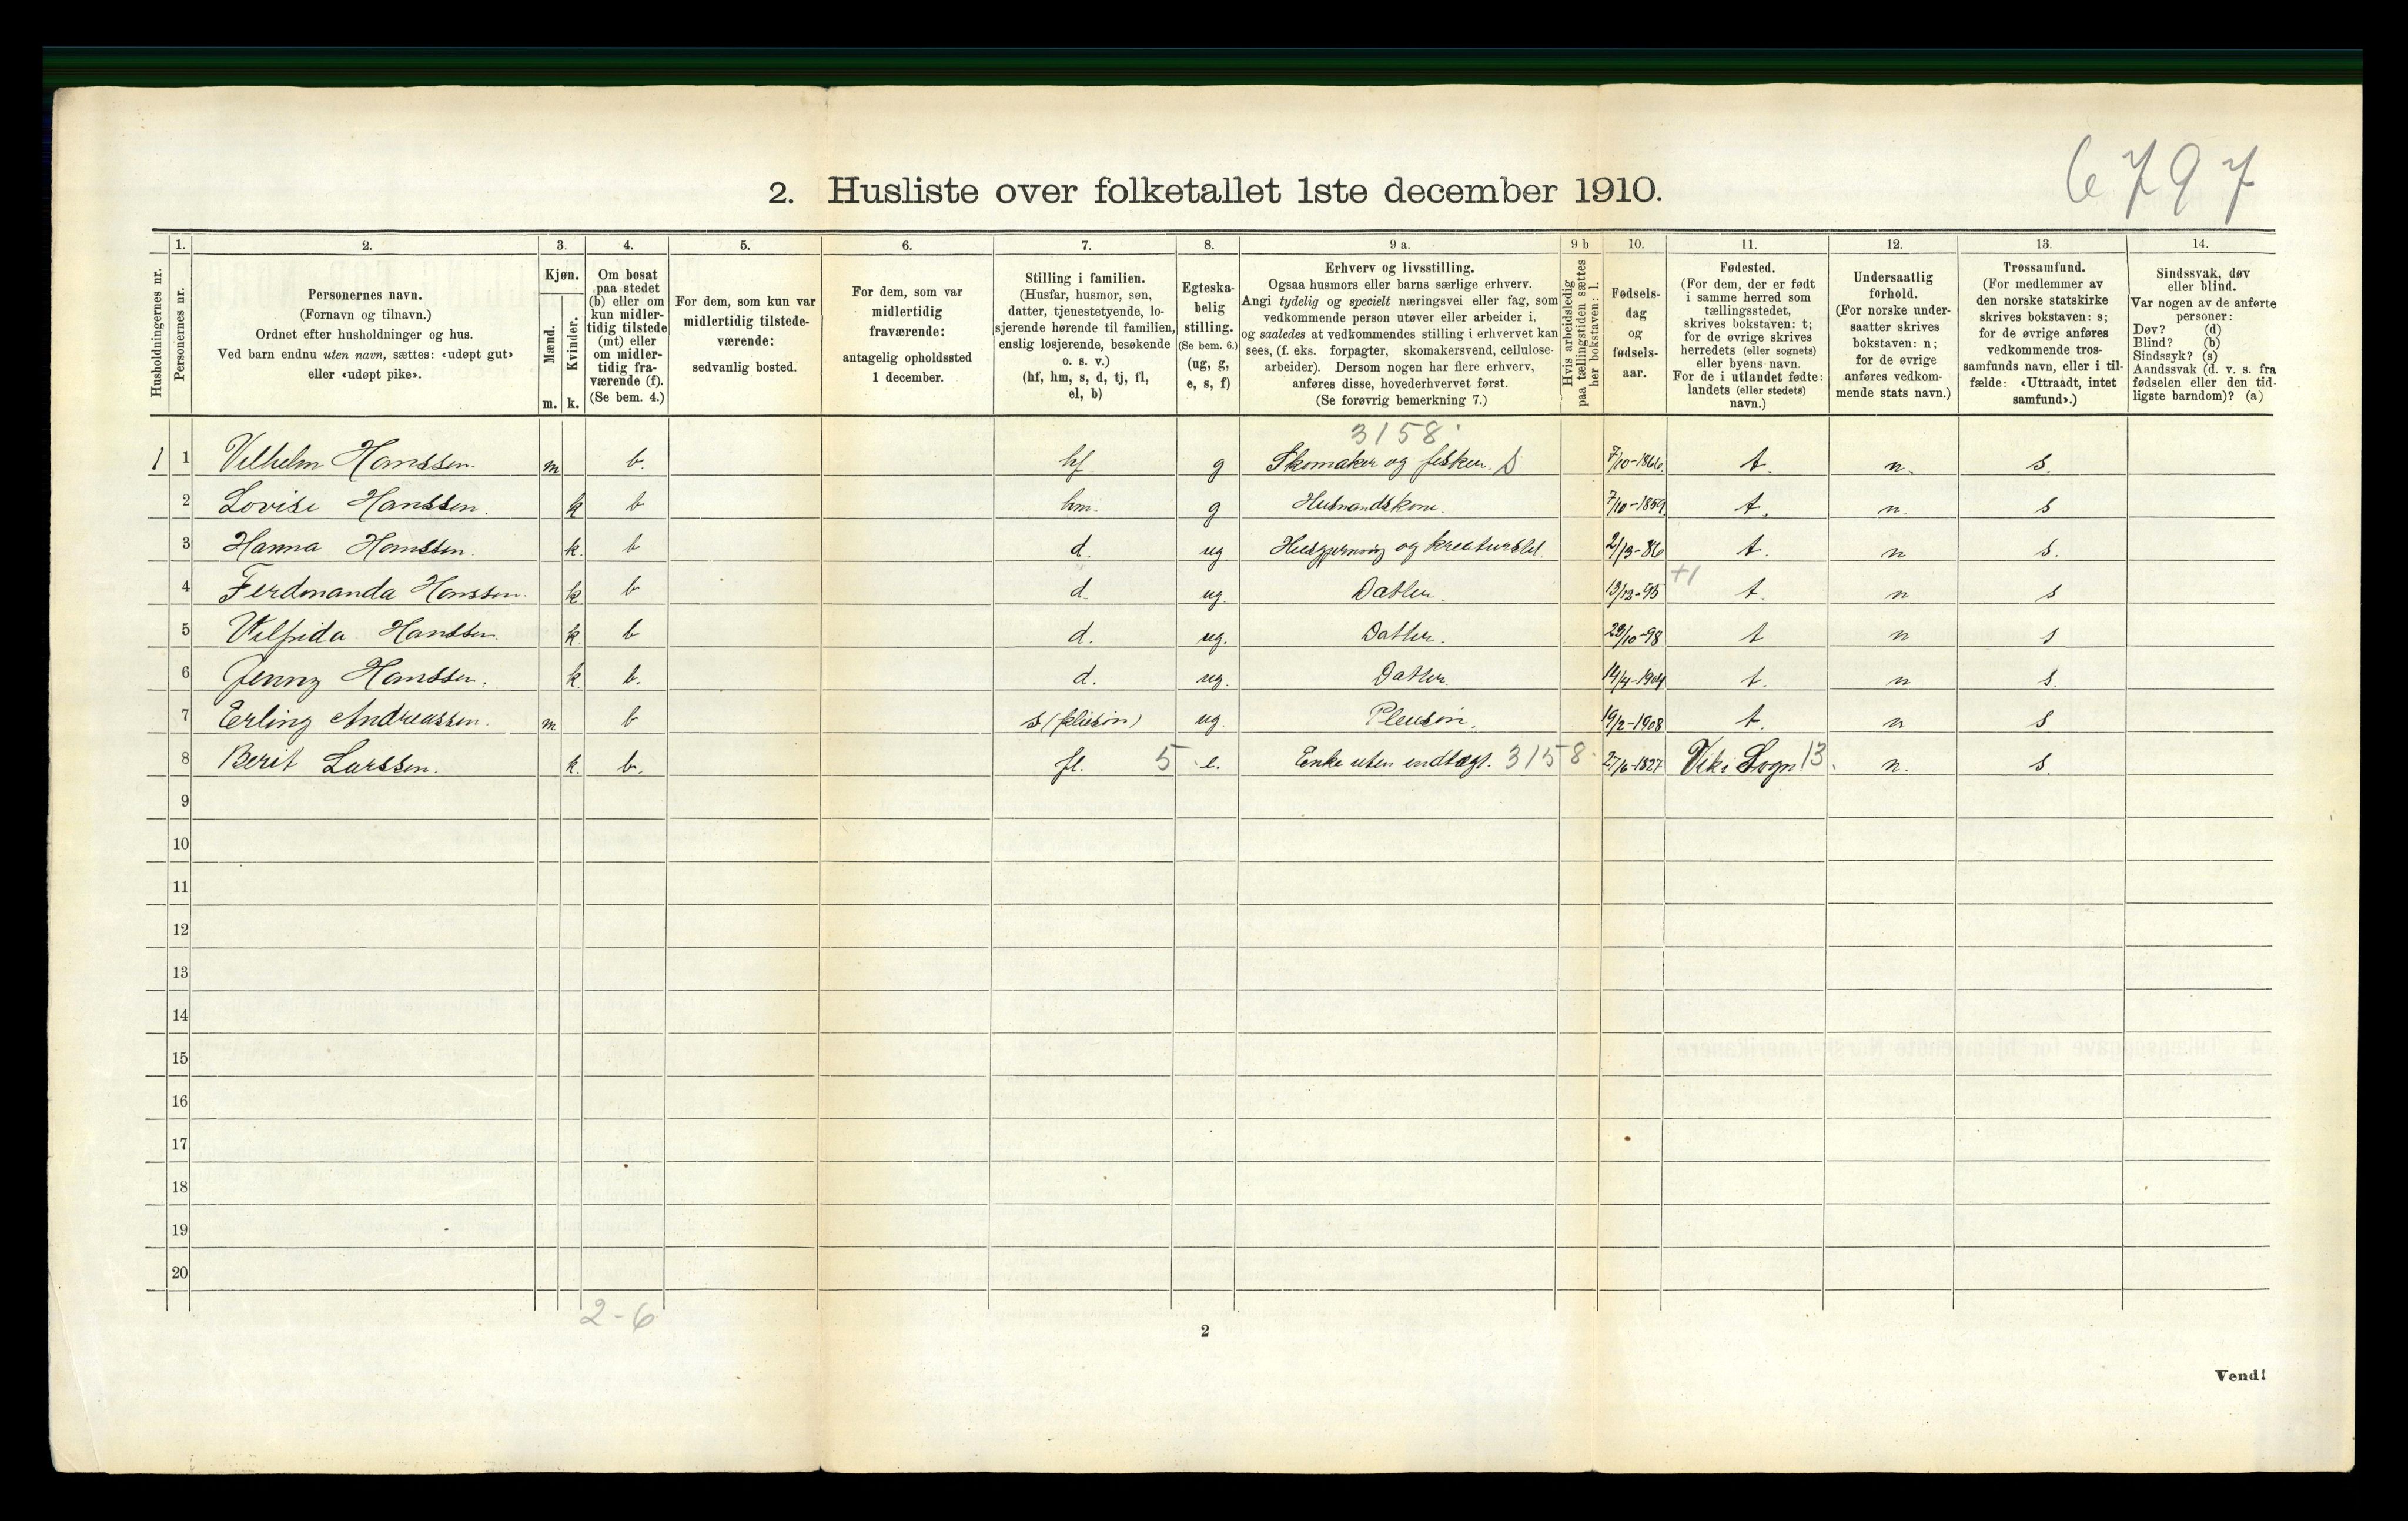 6797
2. Husliste over folketallet 1ste december 1910.
Husholdningernes nr.
1.
Personernes nr.
2.
Personernes navn.
(Fornavn og tilnavn.)
Ordnet efter husholdninger og hus.
Ved barn endnu uten navn, sættes: «udøpt gut»
eller «udøpt pike».
3.
Kjøn.
Mænd.
Kvinder.
m. k.
4.
Om bosat
paa stedet
(b) eller om
kun midler-
tidig tilstede
(mt) eller
om midler-
tidig fra-
værende (f).
(Se bem. 4.)
5.
For dem, som kun var
midlertidig tilstede-
værende:
sedvanlig bosted.
6.
For dem, som var
midlertidig
fraværende:
antagelig opholdssted
1 december.
7.
Stilling i familien.
(Husfar, husmor, søn,
datter, tjenestetyende, lo-
sjerende hørende til familien,
enslig losjerende, besøkende
o. s. v.)
(hf, hm, s, d, tj, fl,
el, b)
8.
Egteska-
belig
stilling.
(Se bem. 6.)
(ug, g,
e, s, f)
9 a.
Erhverv og livsstilling.
Ogsaa husmors eller barns særlige erhverv.
Angi tydelig og specielt næringsvei eller fag, som
vedkommende person utøver eller arbeider i,
og saaledes at vedkommendes stilling i erhvervet kan
sees, (f. eks. forpagter, skomakersvend, cellulose-
arbeider). Dersom nogen har flere erhverv,
anføres disse, hovederhvervet først.
(Se forøvrig bemerkning 7.)
9 b
Hvis arbeidsledig
paa tællingstiden sættes
her bokstaven: l.
10.
Fødsels-
dag
og
fødsels-
aar.
11.
Fødested.
(For dem, der er født
i samme herred som
tællingsstedet,
skrives bokstaven: t;
for de øvrige skrives
herredets (eller sognets)
eller byens navn.
For de i utlandet fødte:
landets (eller stedets)
navn.)
12.
Undersaatlig
forhold.
(For norske under-
saatter skrives
bokstaven: n;
for de øvrige
anføres vedkom-
mende stats navn.)
13.
Trossamfund.
(For medlemmer av
den norske statskirke
skrives bokstaven: s;
for de øvrige anføres
vedkommende tros-
samfunds navn, eller i til-
fælde: «Uttraadt, intet
samfund».)
14.
Sindssvak, døv
eller blind.
Var nogen av de anførte
personer:
Døv? (d)
Blind? (b)
Sindssyk? (s)
Aandssvak (d. v. s. fra
fødselen eller den tid-
ligste barndom)? (a)
3158
1 1 Vilhelm Hanssen. m b. hf g Skomaker og fisker. 7/10-1866. t. n. s.
2 Lovise Hanssen. k b hm. g Husmandskone. 7/10-1859 t. n. s
3 Hanna Hanssen. k. b d. ug Husgjerning og kreaturstel. t. n s.
+1
4 Ferdinanda Hanssen. k b d. ug. Datter. 13/12-95 t. n s
5 Vilfrida Hanssen. k b d. ug. Datter. 23/10-98 t n s
6 Jenny Hanssen. k. b. d. ug. Datter 14/4-1904 t. n s.
7 Erling Andreassen. m b s (pleiesøn) ug. Pleiesøn. 19/2-1908 t. n s
8 Berit Larssen. k. b. fl. 5 e. Enke uten indtægt. 3158 27/6-1827 Vik i Sogn 13. n. s.
9
10
11
12
13
14
15
16
17
18
19
20
2-6
2
Vend!